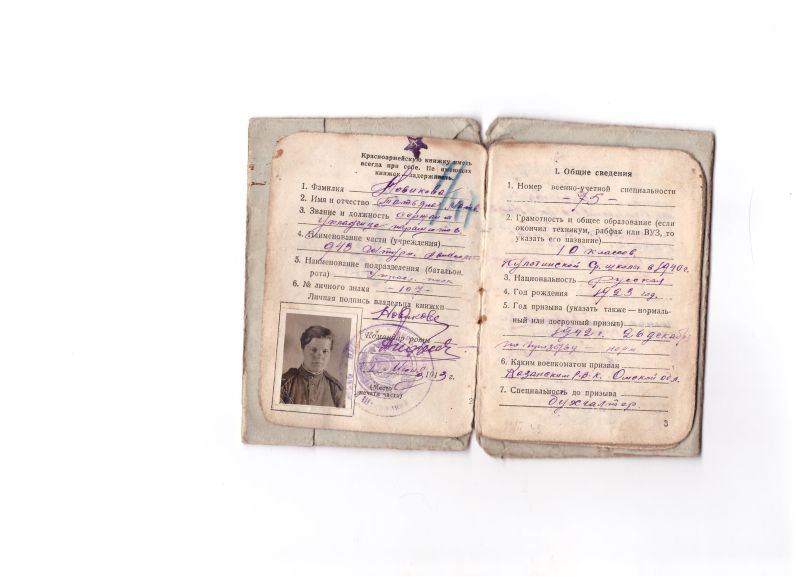 Красноармейскую книжку иметь
всегда при себе. Не имеющих
книжек — задерживать.
1. Фамилия Новикова
2. Имя и отчество
3. Звание и должность
укладчица парашютов
4. Наименование части (учреждения)
943
5. Наименование подразделения (батальон,
рота)
6. № личного знака -107-
Личная подпись владельца книжки
Новикова
Командир роты
1943 г.
(Место
печати части)
2
I. Общие сведения
1. Номер военно-учетной специальности
-75-
2. Грамотность и общее образование (если
окончил техникум, рабфак или ВУЗ, то
указать его название)
10 классов
школа в 1940 г.
3. Национальность Русская
4. Год рождения 1923 год.
5. Год призыва (указать также — нормаль-
ный или досрочный призыв)
1942 г. 26 декабря
6. Каким военкоматом призван
Казанским Р.В.К. Омской обл.
7. Специальность до призыва
бухгалтер.
3